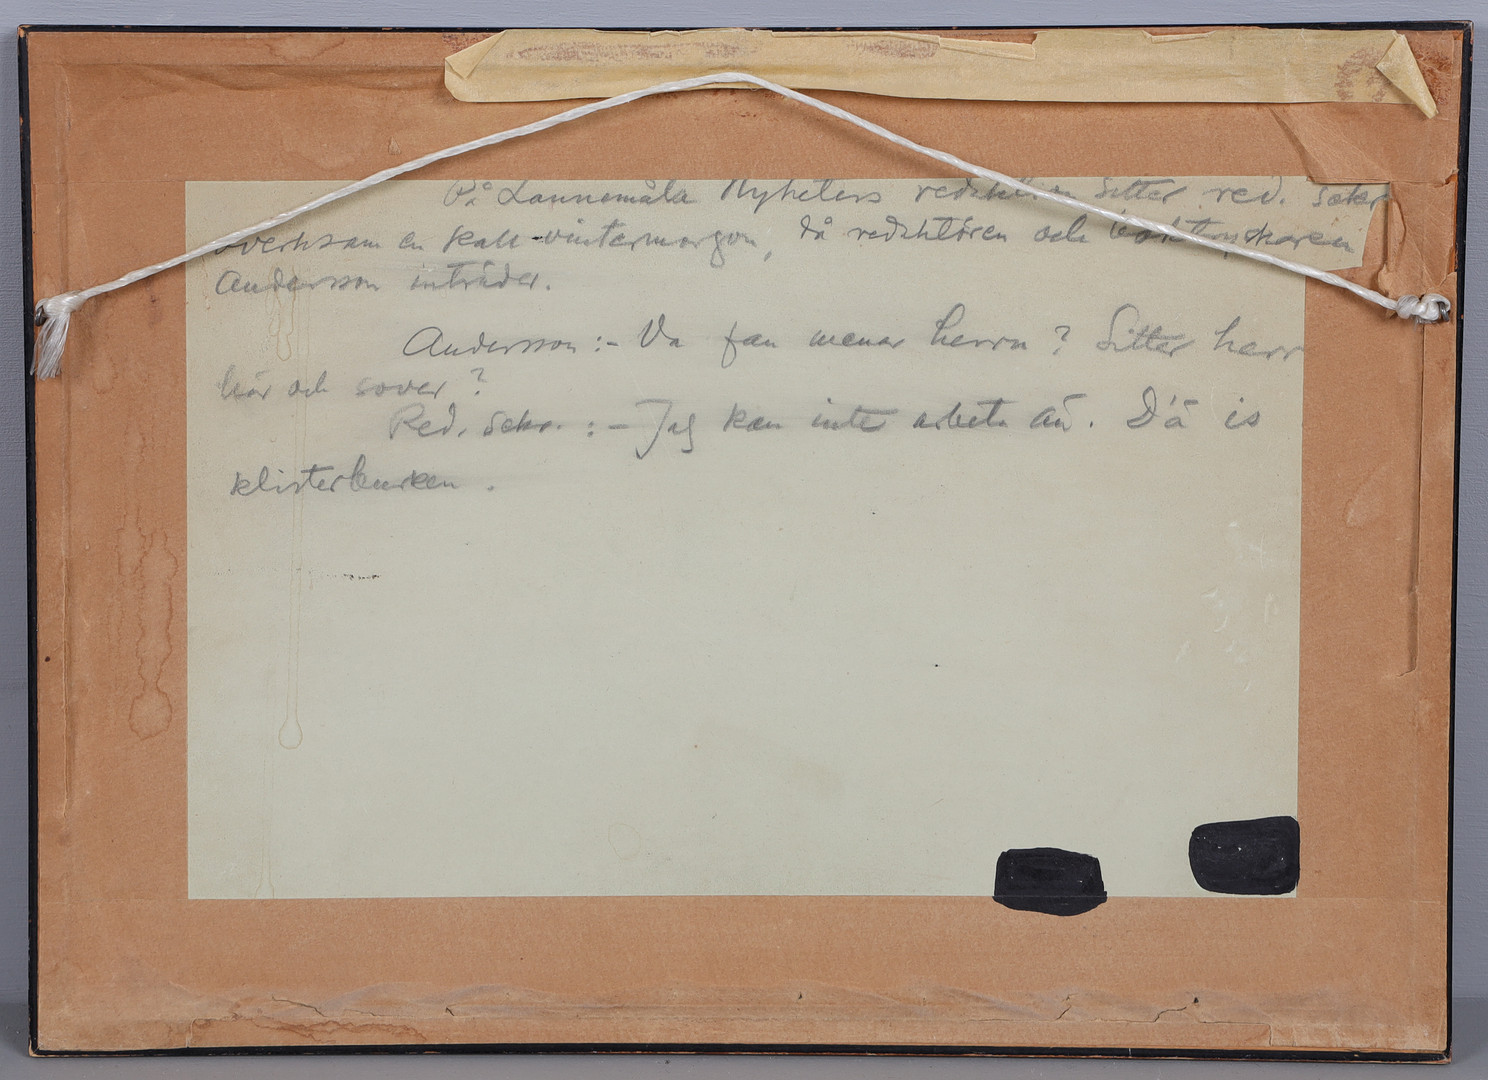 På Lannemåla Nyheters redaktion sitter red. sekr
overksam en kall vintermorgon, då redaktören och boktryckaren
Andersson inträder.
Andersson :- Va fan menar herrn ? Sitter herr
här och sover ?
Red. sekr. :- Jag kan inte arbeta än. D'ä is
klisterburken .